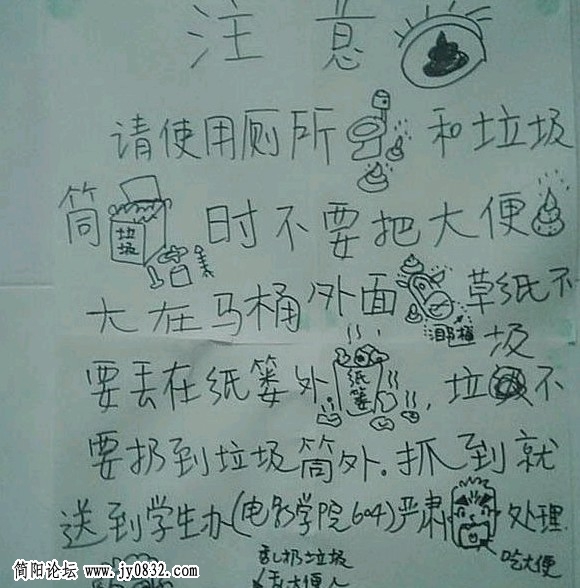 注意
请使用厕所和垃圾
筒时不要把大便
垃圾
大在马桶外面草纸不
马桶
要丢在纸篓外.垃圾不
纸篓
要扔到垃圾筒外.抓到就
送到学生办(电影学院604)严肃处理
吃大便
乱扔垃圾
大便人
简阳论坛 www.jy0832.com